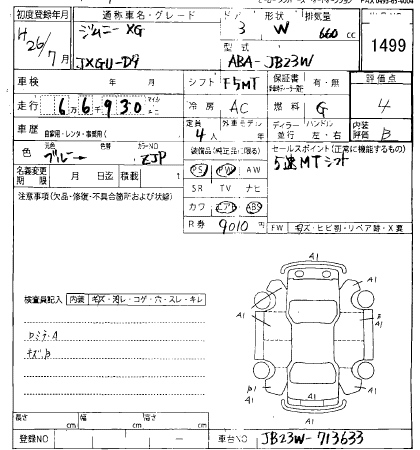 初度登録年月 通称車名・グレード ドア 形状 排気量
H26/7月 ジムニー XG 3 W 660 cc 1499
型式
JXGU-D9 ABA-JB23W
車検 年 月 シフト F5MT 保証書 有・無 評価点
走行 66930 マイル 冷房 AC 燃料 G 4
定員 外車モデル ディーラー ハンドル 内装
車歴 自家用・レンタ・事業用( 4人 年 並行 左・右 評価 B
色 元色 色替 カラーNO 装備品(純正品に限る) セールスポイント(正常に機能するもの)
ブルー ZJP PS PW AW 5速MTシフト
名義変更期限 月 日迄 積載 t SR TV ナビ
注意事項(欠品・修復・不具合箇所および状態) カワ エアB ABS
R券 9010円 FW キズ・ヒビ割・リペア跡・X要
検査員記入 内装 キズ・汚レ・コゲ・穴・スレ・キレ
キズB
A1
A1
A1
A1
A1
B1
A1
長さ cm 幅 cm 高さ cm
登録NO 車台NO JB23W-713633